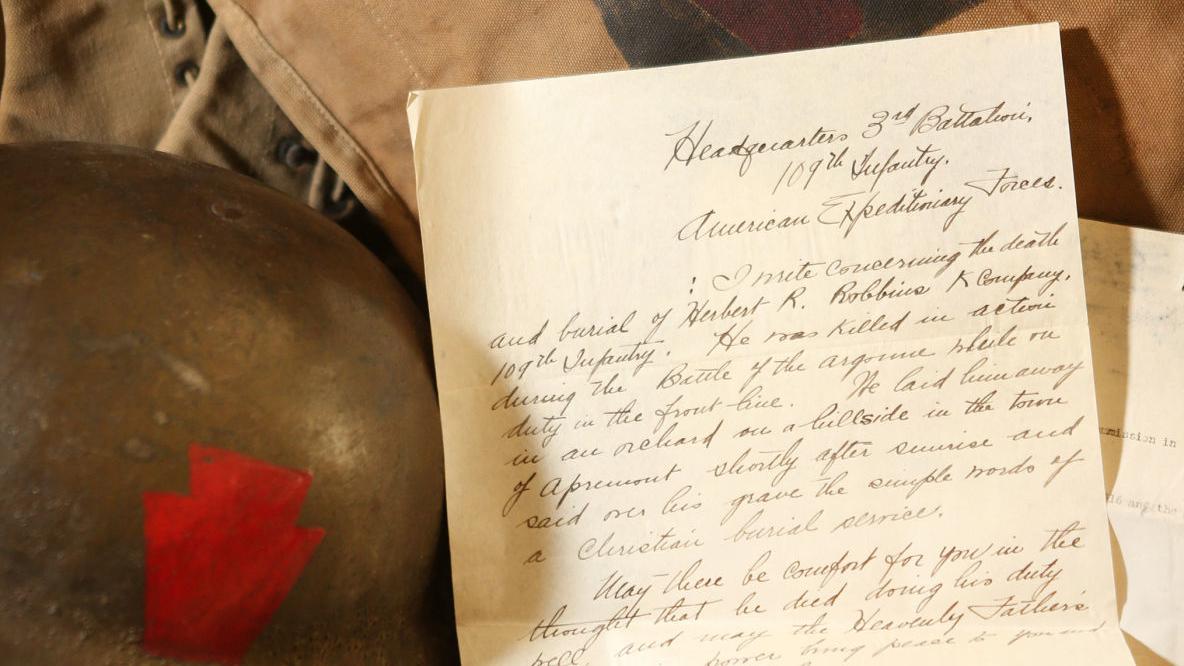 Headquarters 3rd Battalion,
109th Infantry.
American Expeditionary Forces.
: I write concerning the death
and burial of Herbert R. Robbins K Company,
109th Infantry. He was killed in action
during the Battle of the argonne while on
duty in the front line. We laid him away
in an orchard on a hillside in the town
of Apremont shortly after sunrise and
said over his grave the simple words of
a Christian burial service.
May there be comfort for you in the
thought that he died doing his duty
well, and may the Heavenly Father's
power bring peace to you and
mission in
16 and the